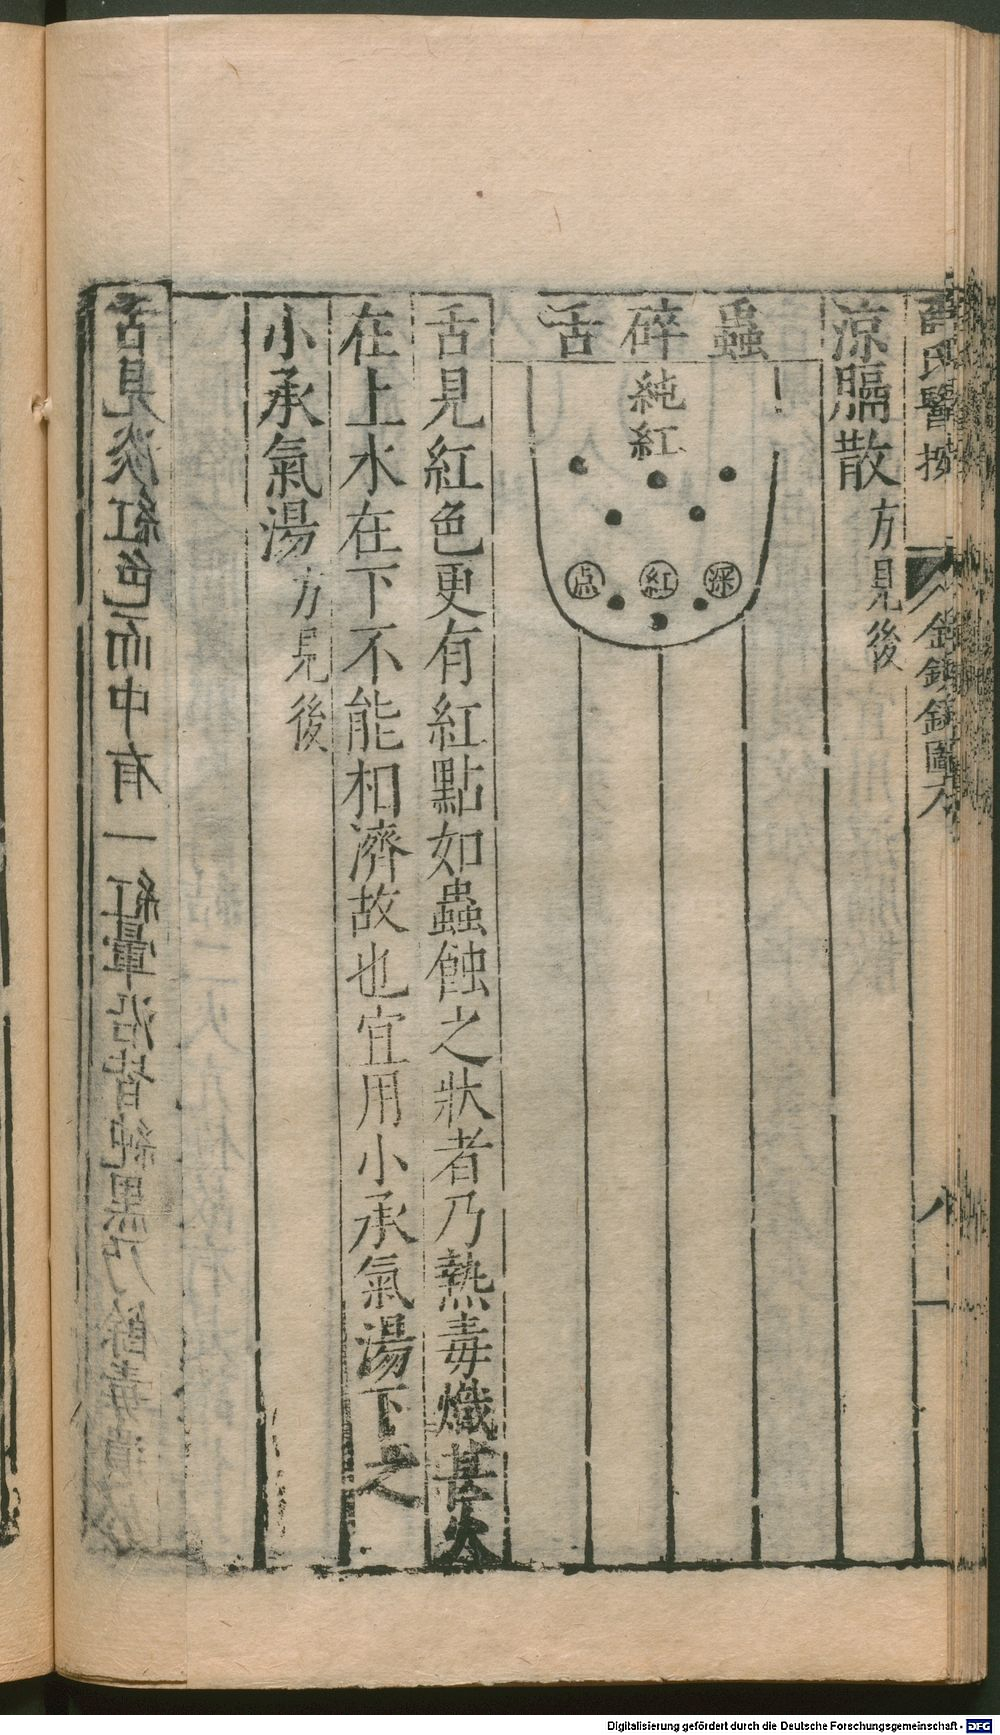 薛氏醫按 金鏡錄圖 八
涼膈散方見後
蟲碎舌
純紅
深紅点
舌見紅色更有紅點如蟲蝕之狀者乃熱毒熾甚火
在上水在下不能相濟故也宜用小承氣湯下之
小承氣湯方見後
舌見淡紅色而中有一紅暈沿皆純黑乃餘毒遺於
Digitalisierung gefördert durch die Deutsche Forschungsgemeinschaft - DFG